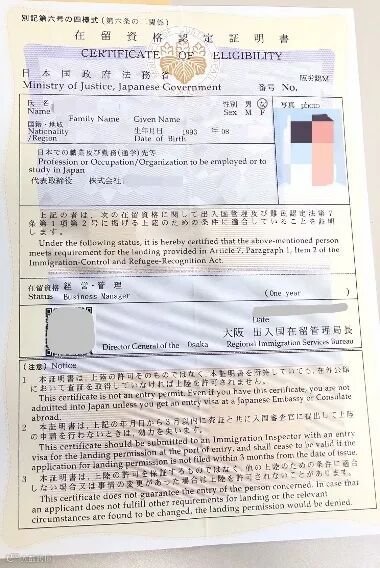 別記第六号の四様式(第六条の二関係)
在留資格認定証明書
CERTIFICATE OF ELIGIBILITY
日本国政府法務省
Ministry of Justice, Japanese Government
阪労認M
番号 No.
氏名
Name
Family Name Given Name
性別 男 女
Sex M F
写真 photo
国籍・地域
Nationality
/Region
生年月日 1993 年 08
Date of Birth
日本での職業及び勤務(通学)先等
Profession or Occupation/Organization to be employed or to
study in Japan
代表取締役 株式会社
上記の者は、次の在留資格に関して出入国管理及び難民認定法第7
条第1項第2号に掲げる上陸のための条件に適合していることを証明
します。
Under the following status, it is hereby certified that the above-mentioned person
meets requirement for the landing provided in Article 7, Paragraph 1, Item 2 of the
Immigration-Control and Refugee-Recognition Act.
在留資格 経営・管理
Status Business Manager
(One year )
Date
大阪 出入国在留管理局長
Director General of the Osaka Regional Immigration Services bureau
(注意) Notice
1 本証明書は、上陸の許可そのものではなく、本証明書を所持していても、在外公館
において査証を取得していなければ上陸を許可されません。
This certificate is not an entry permit. Even if you have this certificate, you are not
admitted into Japan unless you get an entry visa at a Japanese Embassy or Consulate
abroad.
2 本証明書は、上記の年月日から3月以内に査証と共に入国審査官に提出して上陸
の申請を行わないときは、効力を失います。
This certificate should be submitted to an Immigration Inspector with an entry
visa for the landing permission at the port of entry, and shall cease to be valid if the
application for landing permission is not filed within 3 months from the date of issue.
3 本証明書は、上陸の許可を保証するものではなく、他の上陸のための条件に適合
しない場合又は事情の変更があった場合は上陸を許可されないことがあります。
This certificate does not guarantee the entry of the person concerned. In case that
an applicant does not fulfill other requirements for landing or the relevant
circumstances are found to be changed, the landing permission would be denied.